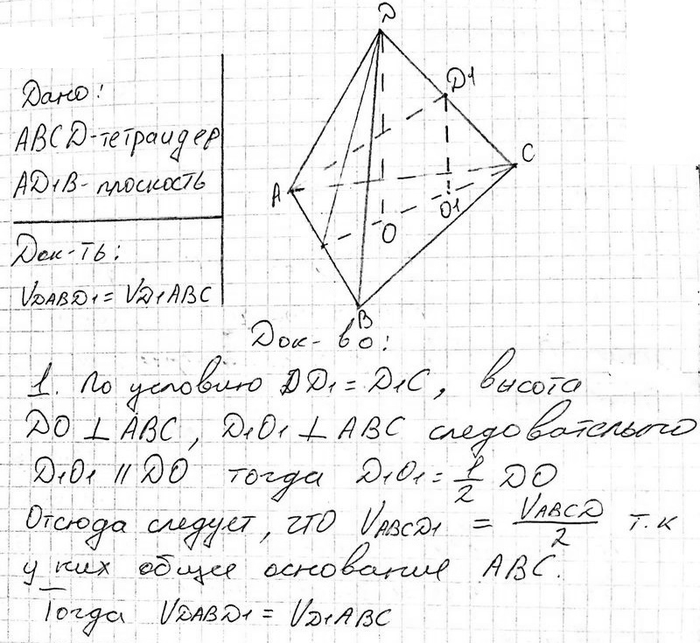 Дано:
ABCD-тетраидер
AD1B-плоскость
Док-ть:
VDABD1 = VD1ABC
D
D1
C
A
O
O1
B
Док-во:
1. По условию DD1 = D1C, высота
DO ⊥ ABC, D1O1 ⊥ ABC следовательно
D1O1 || DO тогда D1O1 = 1/2 DO
Отсюда следует, что VABCD1 = VABCD/2 т.к
у них общее основание ABC.
Тогда VDABD1 = VD1ABC